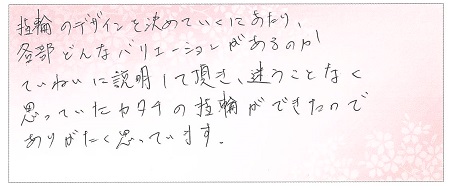 指輪のデザインを決めていくにあたり、
各部どんなバリエーションがあるのか
ていねいに説明して頂き、迷うことなく
思っていたカタチの指輪ができたので
ありがたく思っています。